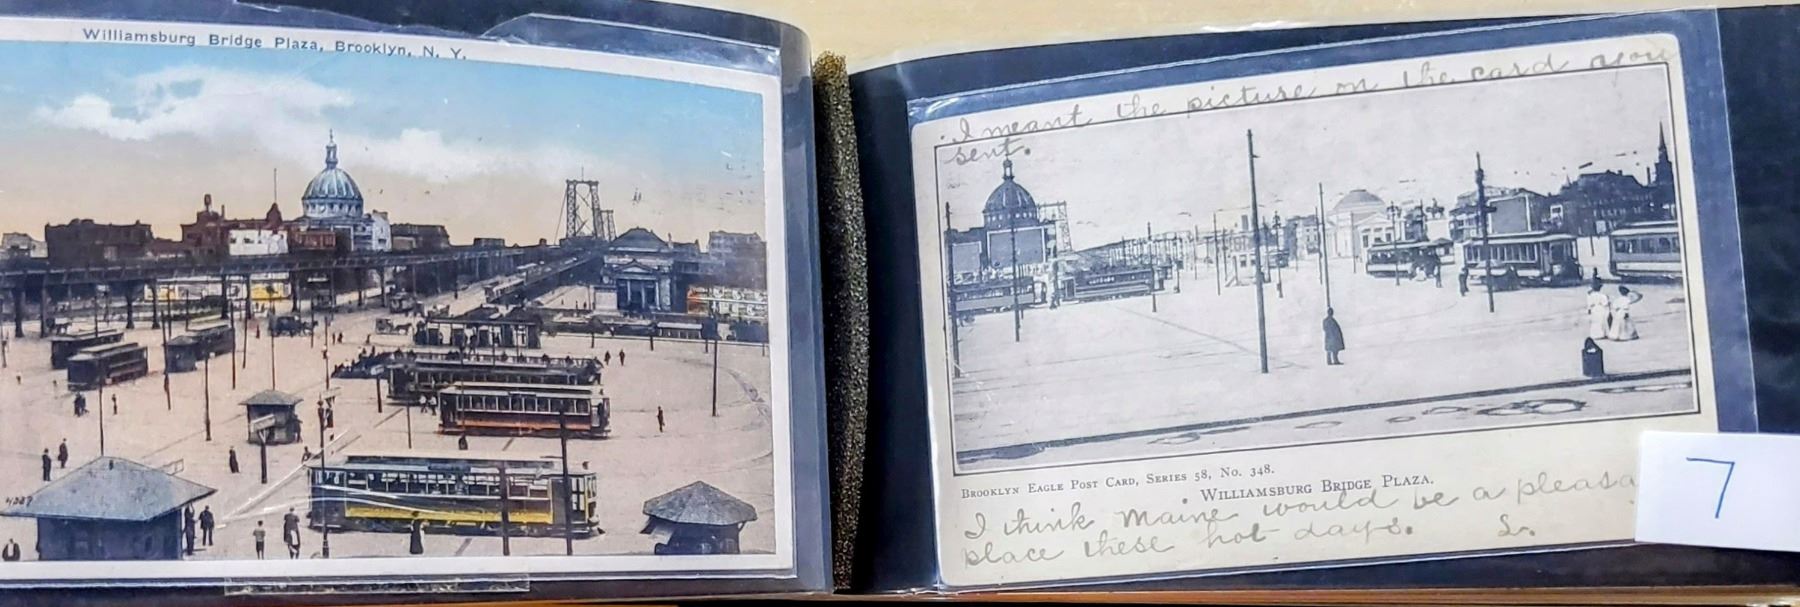 Williamsburg Bridge Plaza, Brooklyn, N. Y.
4087
I meant the picture on the card you
sent.
Brooklyn Eagle Post Card, Series 58, No. 348.
Williamsburg Bridge Plaza.
I think Maine would be a pleasa
place these hot days. L.
7